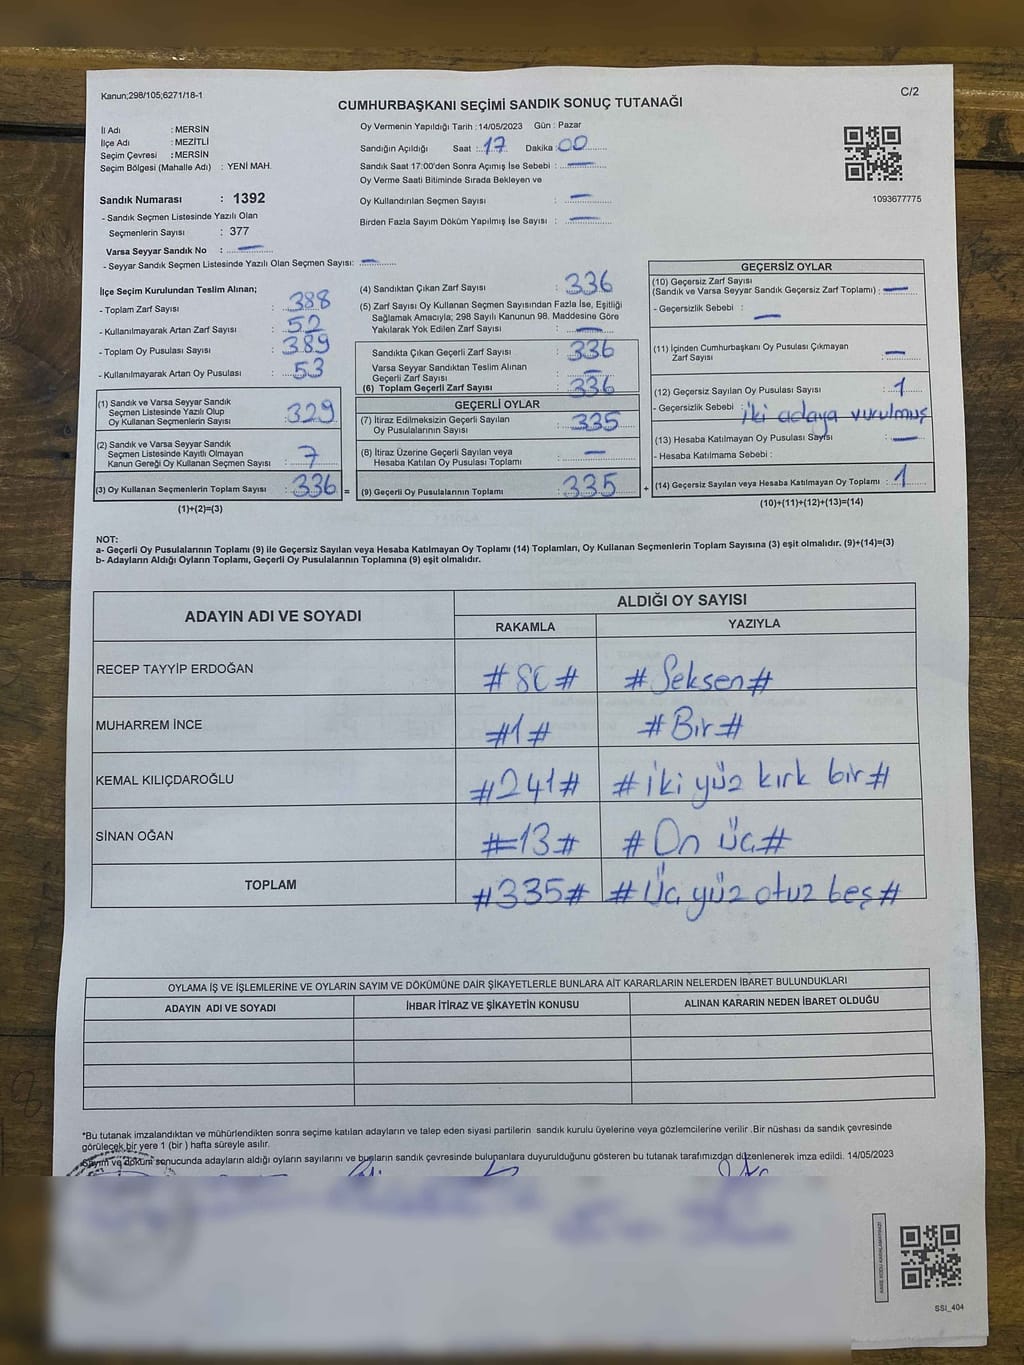 Kanun;298/105;6271/18-1
C/2
CUMHURBAŞKANI SEÇİMİ SANDIK SONUÇ TUTANAĞI
İl Adı : MERSİN
İlçe Adı : MEZİTLİ
Seçim Çevresi : MERSİN
Seçim Bölgesi (Mahalle Adı) : YENİ MAH.
Sandık Numarası : 1392
- Sandık Seçmen Listesinde Yazılı Olan
Seçmenlerin Sayısı : 377
Varsa Seyyar Sandık No : —
- Seyyar Sandık Seçmen Listesinde Yazılı Olan Seçmen Sayısı: —
Oy Vermenin Yapıldığı Tarih : 14/05/2023 Gün : Pazar
Sandığın Açıldığı Saat : 17 Dakika : 00
Sandık Saat 17:00'den Sonra Açımış İse Sebebi : —
Oy Verme Saati Bitiminde Sırada Bekleyen ve
Oy Kullandırılan Seçmen Sayısı : —
Birden Fazla Sayım Döküm Yapılmış İse Sayısı : —
1093677775
İlçe Seçim Kurulundan Teslim Alınan;
- Toplam Zarf Sayısı : 388
- Kullanılmayarak Artan Zarf Sayısı : 52
- Toplam Oy Pusulası Sayısı : 389
- Kullanılmayarak Artan Oy Pusulası : 53
(1) Sandık ve Varsa Seyyar Sandık
Seçmen Listesinde Yazılı Olup
Oy Kullanan Seçmenlerin Sayısı : 329
(2) Sandık ve Varsa Seyyar Sandık
Seçmen Listesinde Kayıtlı Olmayan
Kanun Gereği Oy Kullanan Seçmen Sayısı : 7
(3) Oy Kullanan Seçmenlerin Toplam Sayısı : 336 =
(1)+(2)=(3)
(4) Sandıktan Çıkan Zarf Sayısı : 336
(5) Zarf Sayısı Oy Kullanan Seçmen Sayısından Fazla İse, Eşitliği
Sağlamak Amacıyla; 298 Sayılı Kanunun 98. Maddesine Göre
Yakılarak Yok Edilen Zarf Sayısı : —
Sandıkta Çıkan Geçerli Zarf Sayısı : 336
Varsa Seyyar Sandıktan Teslim Alınan
Geçerli Zarf Sayısı : —
(6) Toplam Geçerli Zarf Sayısı : 336
GEÇERLİ OYLAR
(7) İtiraz Edilmeksizin Geçerli Sayılan
Oy Pusulalarının Sayısı : 335
(8) İtiraz Üzerine Geçerli Sayılan veya
Hesaba Katılan Oy Pusulası Toplamı : —
(9) Geçerli Oy Pusulalarının Toplamı : 335 +
GEÇERSİZ OYLAR
(10) Geçersiz Zarf Sayısı
(Sandık ve Varsa Seyyar Sandık Geçersiz Zarf Toplamı) : —
- Geçersizlik Sebebi : —
(11) İçinden Cumhurbaşkanı Oy Pusulası Çıkmayan
Zarf Sayısı : —
(12) Geçersiz Sayılan Oy Pusulası Sayısı : 1
- Geçersizlik Sebebi : iki adaya vurulmuş
(13) Hesaba Katılmayan Oy Pusulası Sayısı : —
- Hesaba Katılmama Sebebi :
(14) Geçersiz Sayılan veya Hesaba Katılmayan Oy Toplamı : 1
(10)+(11)+(12)+(13)=(14)
NOT:
a- Geçerli Oy Pusulalarının Toplamı (9) ile Geçersiz Sayılan veya Hesaba Katılmayan Oy Toplamı (14) Toplamları, Oy Kullanan Seçmenlerin Toplam Sayısına (3) eşit olmalıdır. (9)+(14)=(3)
b- Adayların Aldığı Oyların Toplamı, Geçerli Oy Pusulalarının Toplamına (9) eşit olmalıdır.
ADAYIN ADI VE SOYADI
ALDIĞI OY SAYISI
RAKAMLA YAZIYLA
RECEP TAYYİP ERDOĞAN #80# #Seksen#
MUHARREM İNCE #1# #Bir#
KEMAL KILIÇDAROĞLU #241# #iki yüz kırk bir#
SİNAN OĞAN #13# #On Üç#
TOPLAM #335# #Üç yüz otuz beş#
OYLAMA İŞ VE İŞLEMLERİNE VE OYLARIN SAYIM VE DÖKÜMÜNE DAİR ŞİKAYETLERLE BUNLARA AİT KARARLARIN NELERDEN İBARET BULUNDUKLARI
ADAYIN ADI VE SOYADI İHBAR İTİRAZ VE ŞİKAYETİN KONUSU ALINAN KARARIN NEDEN İBARET OLDUĞU
*Bu tutanak imzalandıktan ve mühürlendikten sonra seçime katılan adayların ve talep eden siyasi partilerin sandık kurulu üyelerine veya gözlemcilerine verilir .Bir nüshası da sandık çevresinde
görülecek bir yere 1 (bir ) hafta süreyle asılır.
Sayım ve döküm sonucunda adayların aldığı oyların sayılarını ve bunların sandık çevresinde bulunanlara duyurulduğunu gösteren bu tutanak tarafımızdan düzenlenerek imza edildi. 14/05/2023
SSI_404